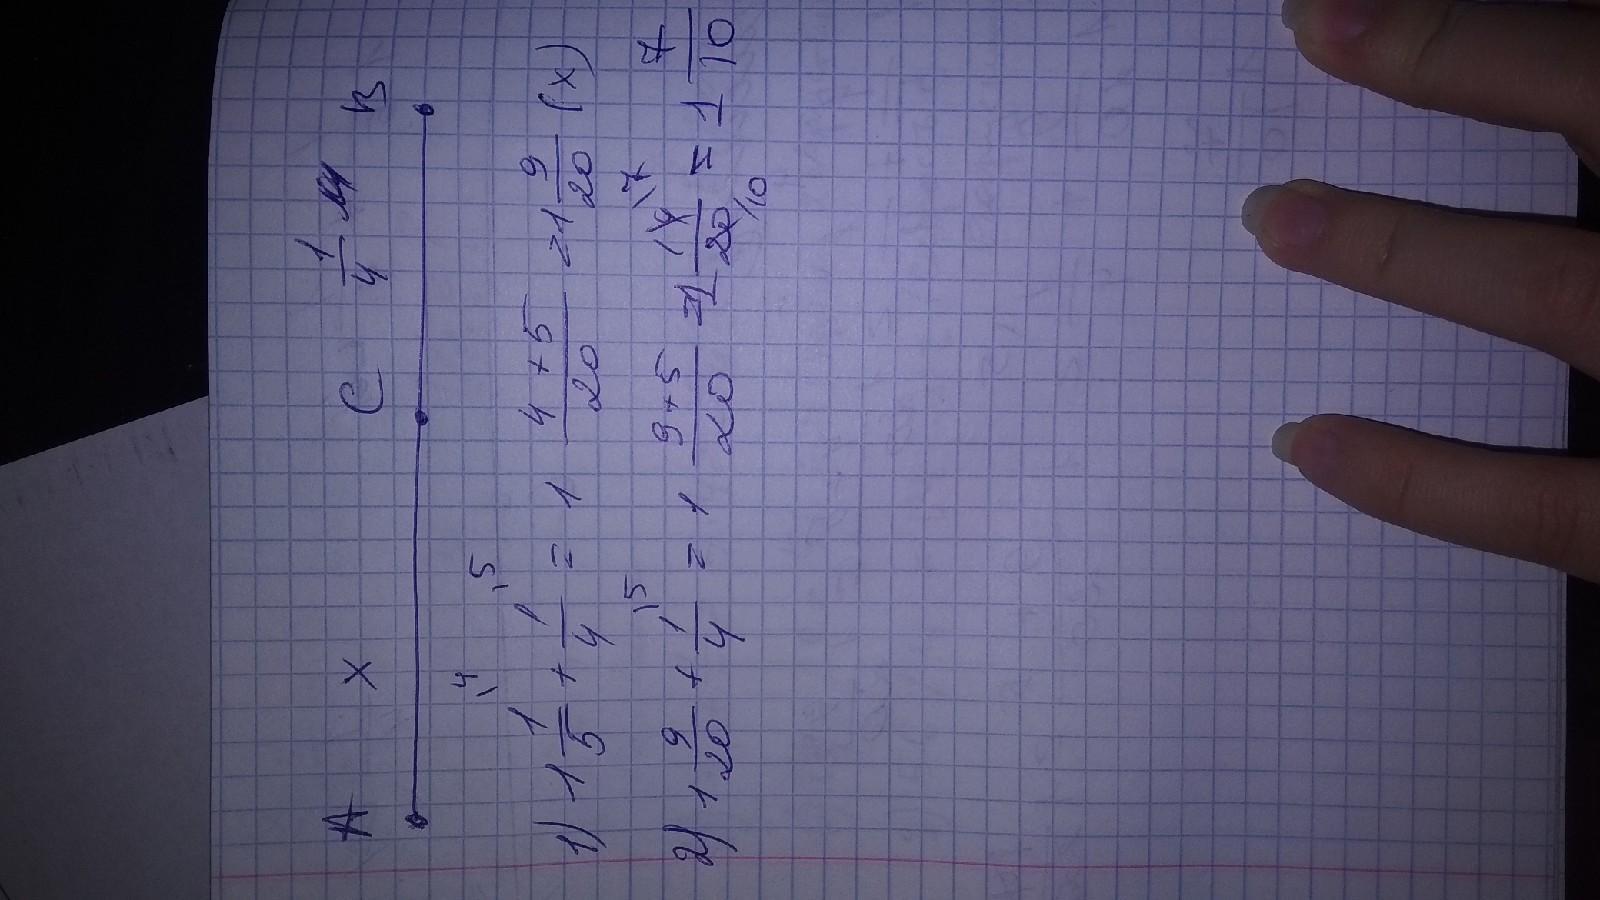 A x C 1/4 м B
1) 1 1/5 \4 + 1/4 \5 = 1 4+5/20 = 1 9/20 (x)
2) 1 9/20 + 1/4 \5 = 1 9+5/20 = 1 14/20 \7 /10 = 1 7/10